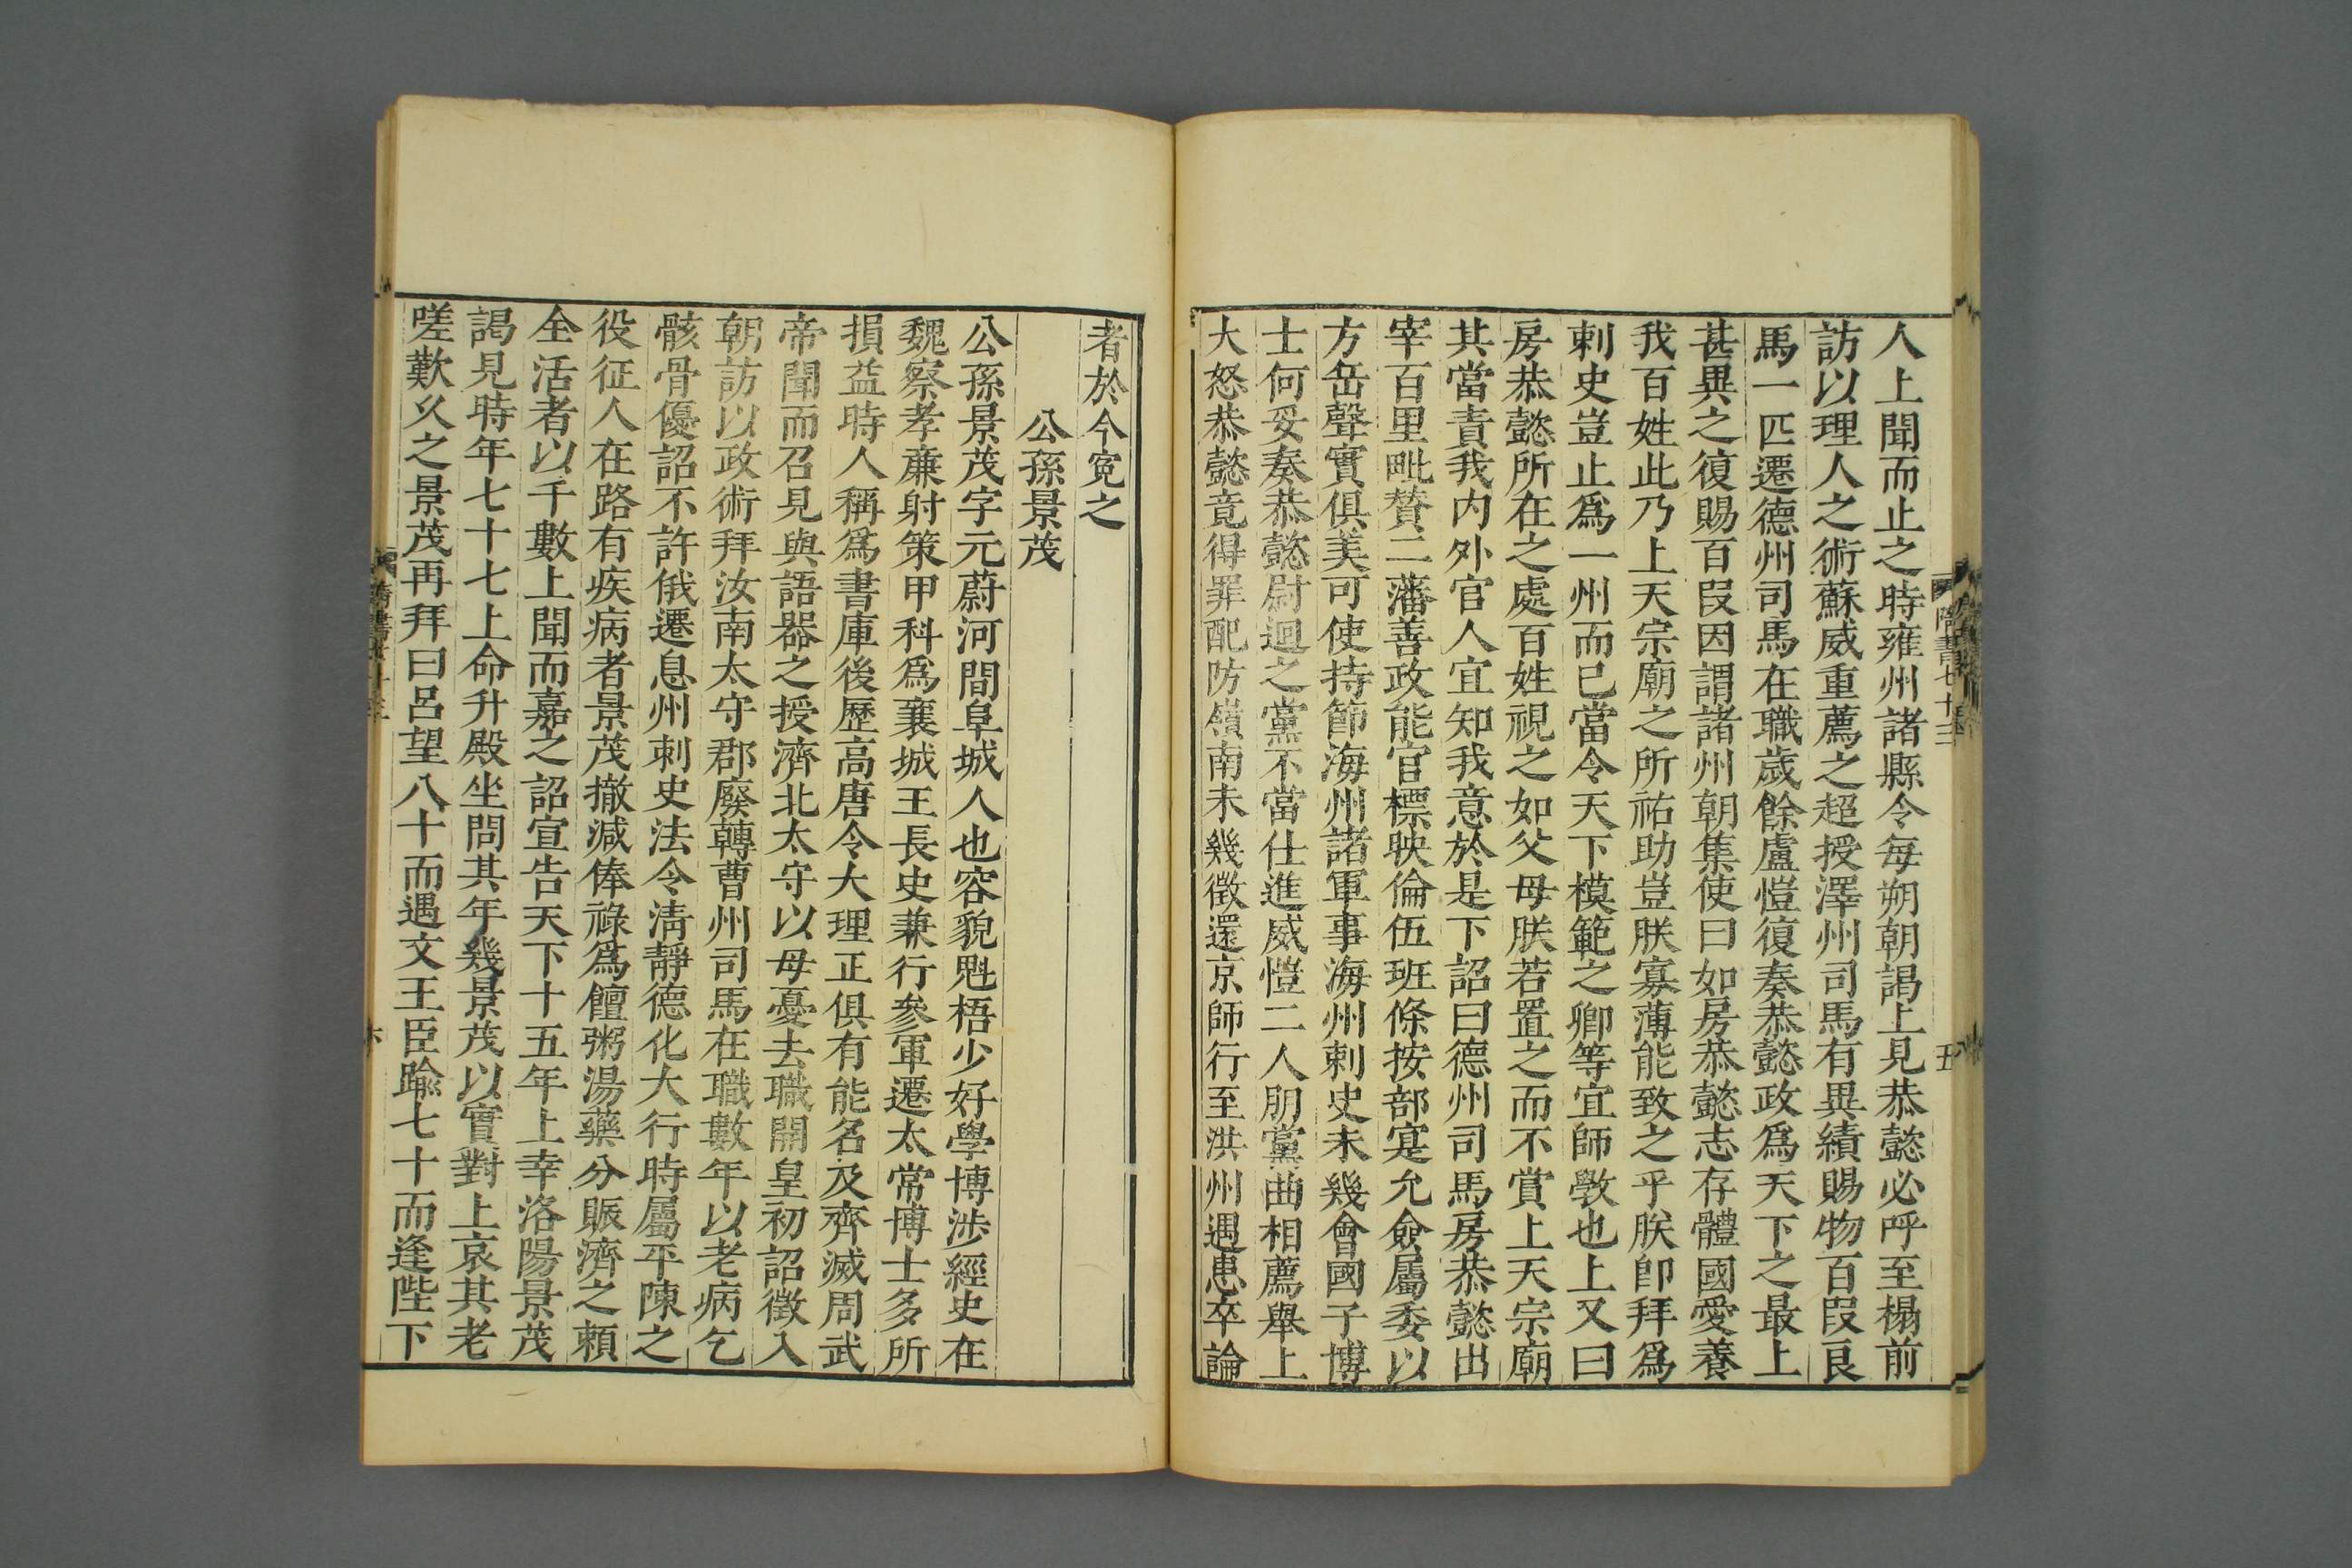 人上聞而止之時雍州諸縣令每朔朝謁上見恭懿必呼至榻前
訪以理人之術蘇威重薦之超授澤州司馬有異績賜物百叚良
馬一匹遷德州司馬在職歲餘盧愷復奏恭懿政爲天下之最上
甚異之復賜百叚因謂諸州朝集使曰如房恭懿志存體國愛養
我百姓此乃上天宗廟之所祐助豈朕寡薄能致之乎朕即拜爲
刺史豈止爲一州而已當令天下模範之卿等宜師斆也上又曰
房恭懿所在之處百姓視之如父母朕若置之而不賞上天宗廟
其當責我内外官人宜知我意於是下詔曰德州司馬房恭懿出
宰百里毗贊二藩善政能官標映倫伍班條按部寔允僉屬委以
方岳聲實俱美可使持節海州諸軍事海州刺史未幾會國子博
士何妥奏恭懿尉迥之黨不當仕進威愷二人朋黨曲相薦舉上
大怒恭懿竟得罪配防嶺南未幾徵還京師行至洪州遇患卒論
隋書七十三
五
者於今寃之
公孫景茂
公孫景茂字元蔚河間阜城人也容貌魁梧少好學博涉經史在
魏察孝亷射策甲科爲襄城王長史兼行參軍遷太常博士多所
損益時人稱爲書庫後歷高唐令大理正俱有能名及齊滅周武
帝聞而召見與語器之授濟北太守以母憂去職開皇初詔徵入
朝訪以政術拜汝南太守郡廢轉曹州司馬在職數年以老病乞
骸骨優詔不許俄遷息州刺史法令淸靜德化大行時屬平陳之
役征人在路有疾病者景茂撤減俸祿爲饘粥湯藥分賑濟之賴
全活者以千數上聞而嘉之詔宣告天下十五年上幸洛陽景茂
謁見時年七十七上命升殿坐問其年幾景茂以實對上哀其老
嗟歎乆之景茂再拜曰呂望八十而遇文王臣踰七十而逢陛下